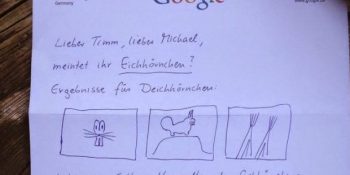 Germany
Google
www.google.de
Lieber Timm, lieber Michael,
meintet ihr Eichhörnchen?
Ergebnisse für Deichhörnchen: